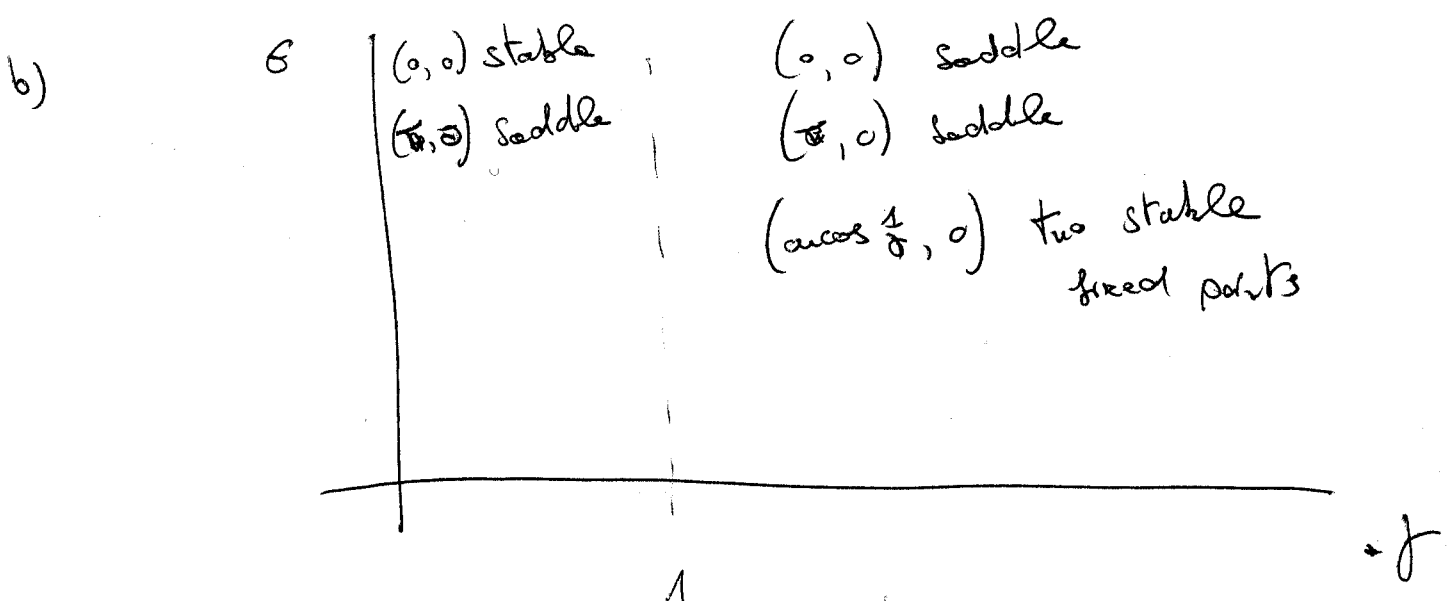 b)
ϵ
(0,0) stable
(0,0) saddle
(π,0) saddle
(π,0) saddle
(arcos 1/γ, 0) two stable
fixed points
γ
1